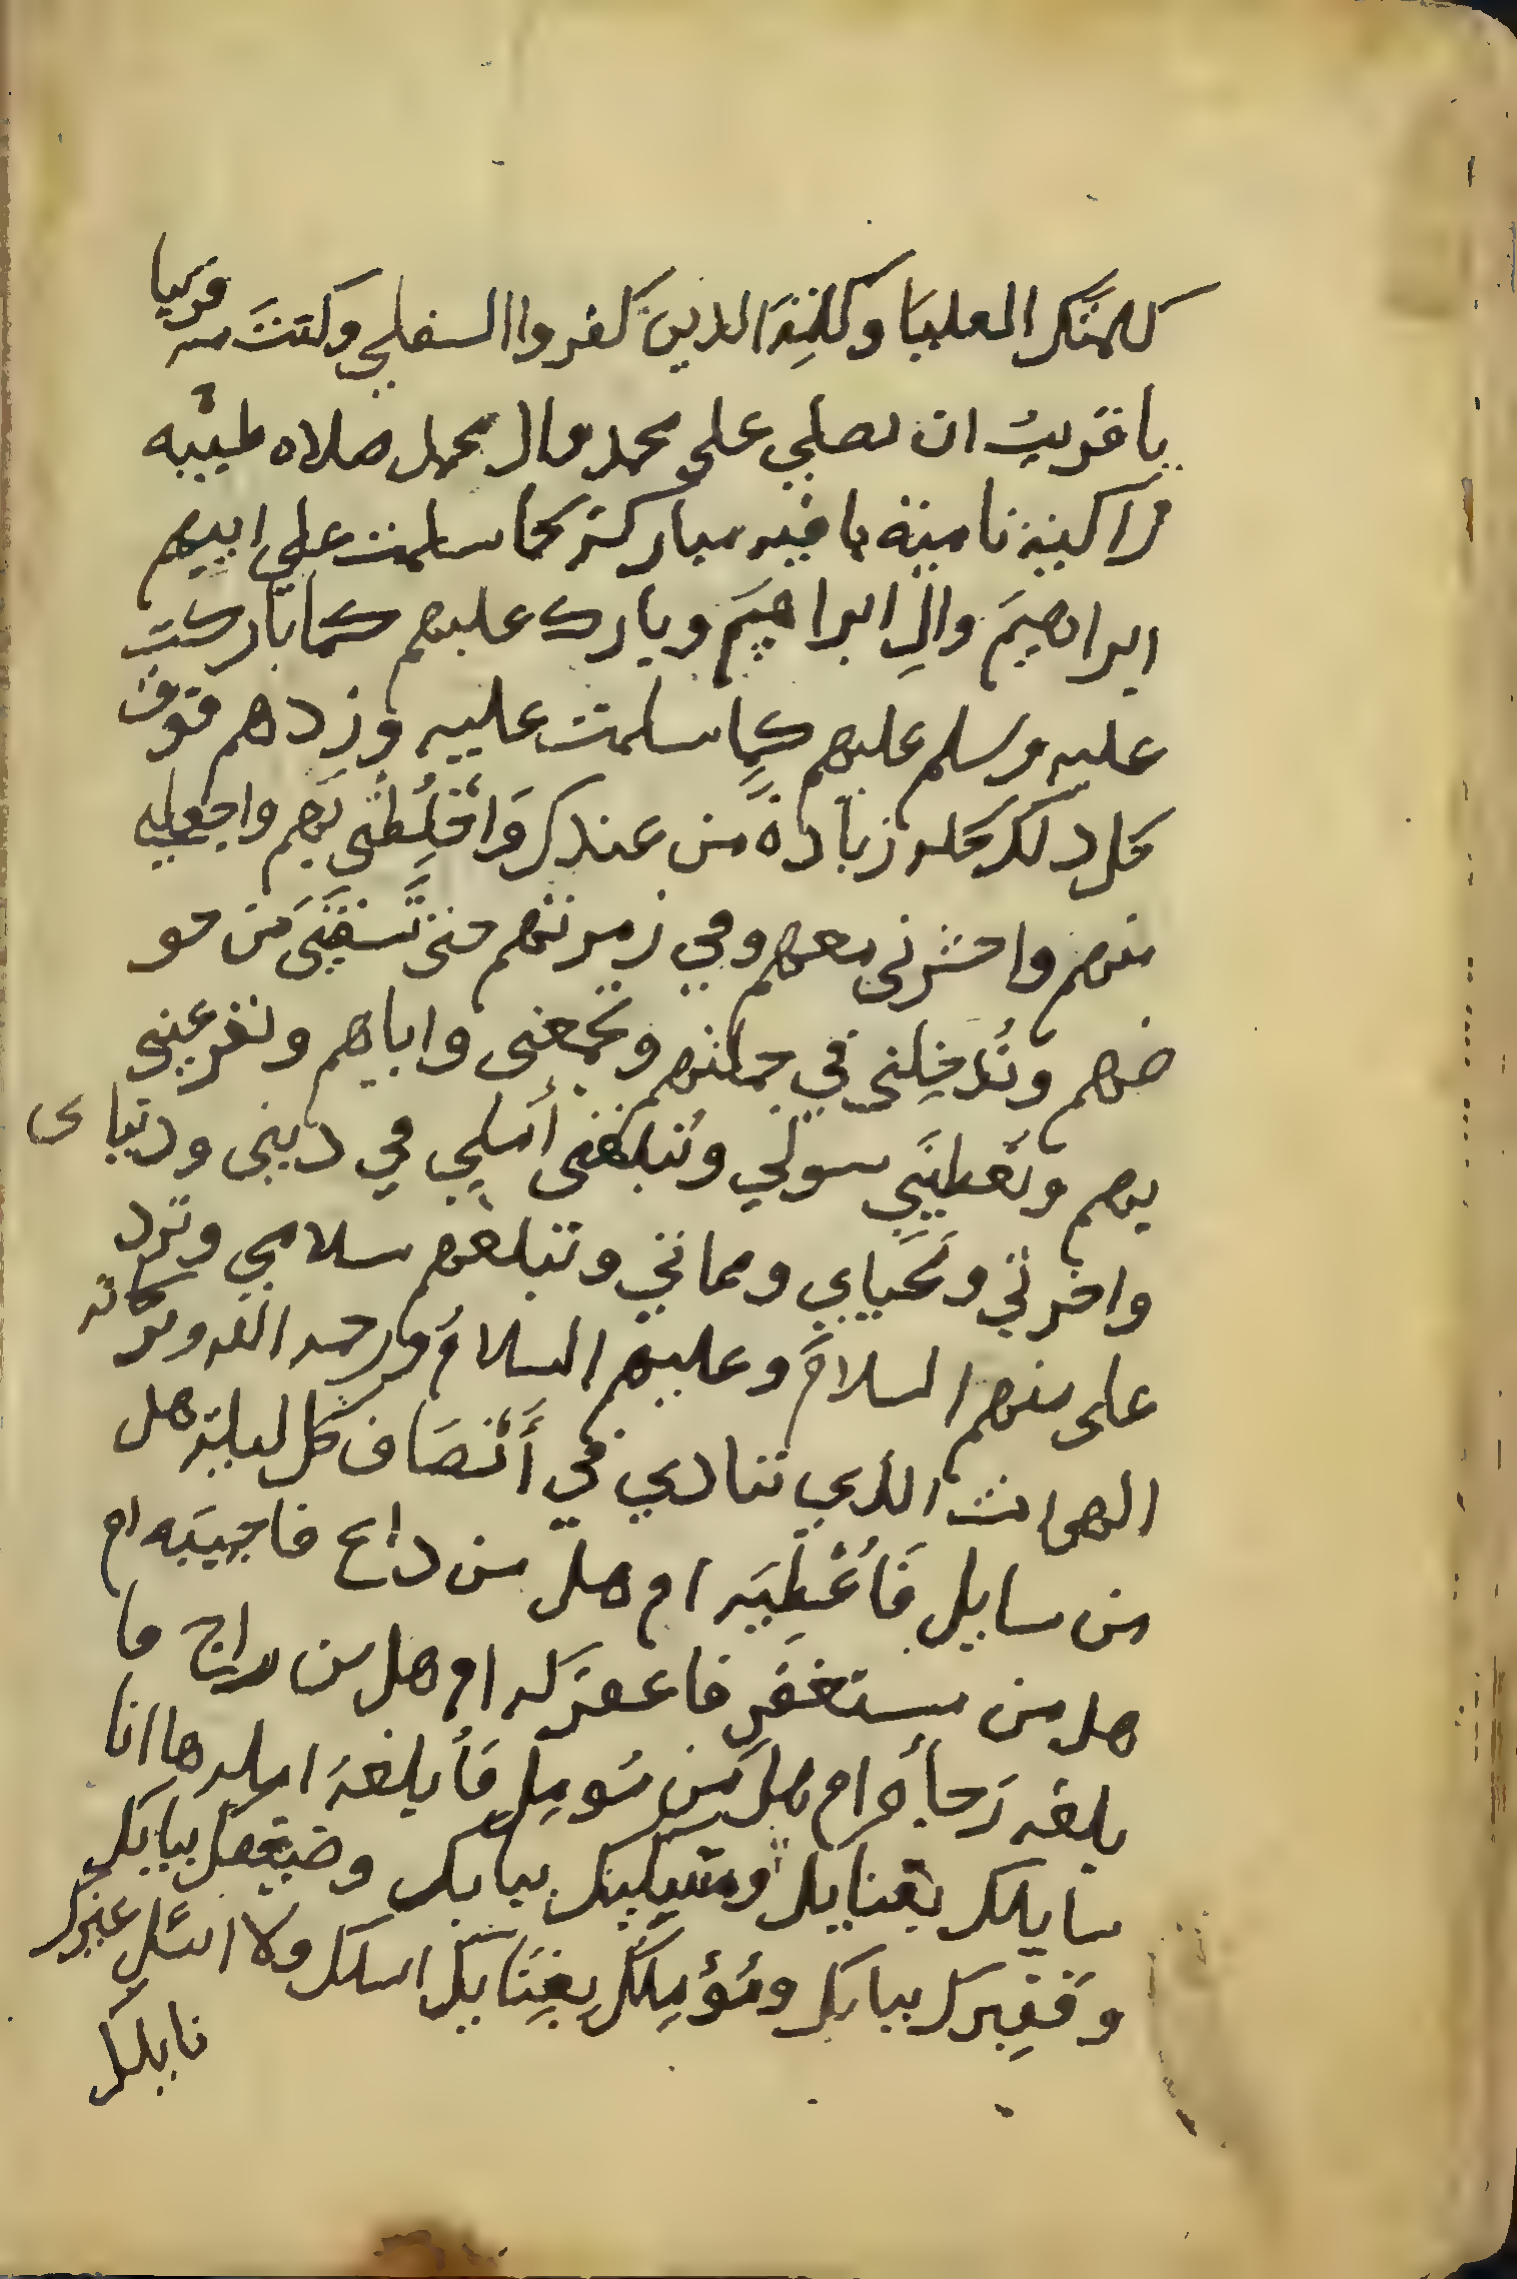 كلمتك العليا وكلمة الذين كفروا السفلي وكنت منه قريبا
يا قريب ان تصلي علي محمد وال محمد صلاه طيبه
زاكية نامية باقيه مباركة كما سلمت علي ابيهم
ابراهيمَ والِ ابراهيمَ وبارك عليهم كما باركت
عليه وسلم عليهم كما سلمت عليه وزدهم فوق
كل ذلك كله زيادة من عندك وَاخْلِطْني بهم واجعلني
منهم واحشرني معهم وفي زمرتهم حتى تَسقِيَني من حو
ضهم وتُدخِلني في جملتهم وتجمعني واياهم وتقر عيني
بهم وتعطيني سولي وتبلغني أملي في ديني ودنياى
واخرتي ومحياي ومماتي وتبلغهم سلامي وترد
على منهم السلامَ وعليهم السلامُ ورحمه الله وبركاته
الهي انت الذي تنادي في أَنْصَاف كل ليلة هل
من سايل فَأُعْطِيَه ام هل من داع فاجيبَه ام
هل من مستغفر فاغفر له ام هل من راج فا
بلغه رَجاه ام هل من مُومِل فَأبلغه امله ها انا
سايلك بفنايك ومسكينك ببابك وضعيفك ببابك
وفقيرك ببابك ومُؤمِلك بفِنَايك اسلك ولا اسئل غيرك
نايلك